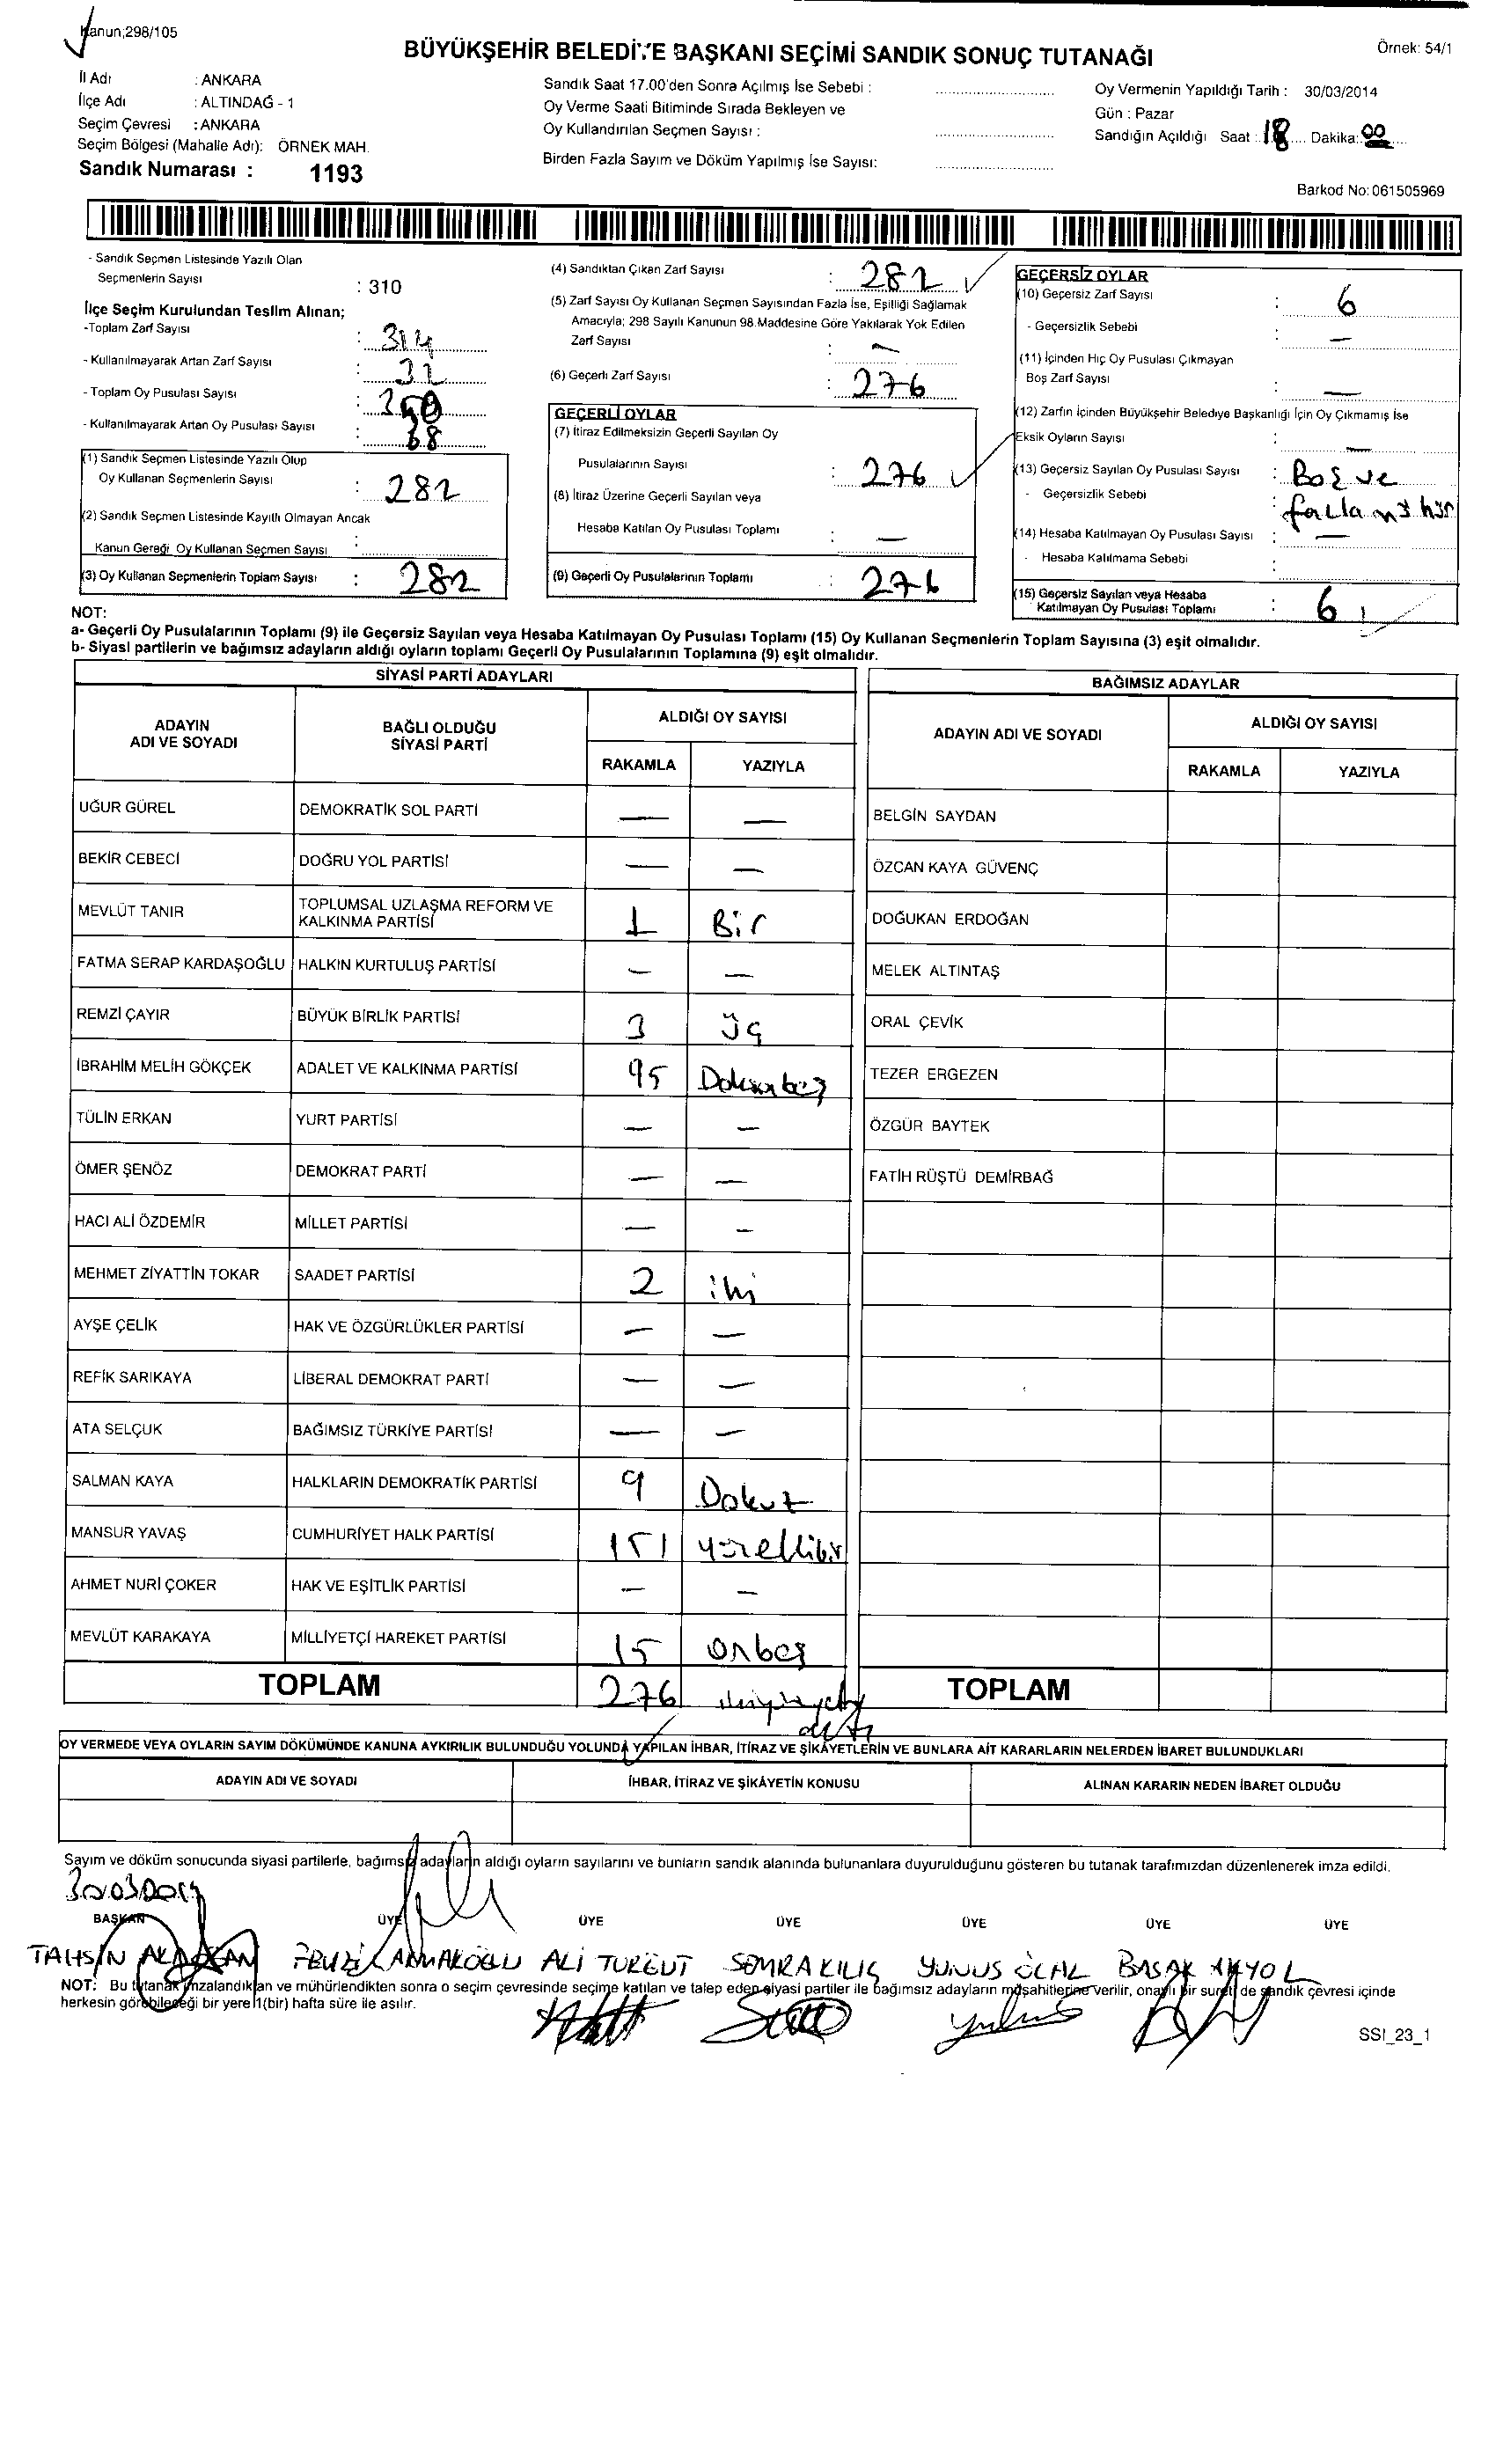 Kanun;298/105
Örnek: 54/1
BÜYÜKŞEHİR BELEDİYE BAŞKANI SEÇİMİ SANDIK SONUÇ TUTANAĞI
İl Adı : ANKARA
İlçe Adı : ALTINDAĞ - 1
Seçim Çevresi : ANKARA
Seçim Bölgesi (Mahalle Adı): ÖRNEK MAH.
Sandık Numarası : 1193
Sandık Saat 17.00'den Sonra Açılmış İse Sebebi :
Oy Verme Saati Bitiminde Sırada Bekleyen ve
Oy Kullandırılan Seçmen Sayısı :
Birden Fazla Sayım ve Döküm Yapılmış İse Sayısı:
Oy Vermenin Yapıldığı Tarih : 30/03/2014
Gün : Pazar
Sandığın Açıldığı Saat : 18 Dakika: 00
Barkod No: 061505969
- Sandık Seçmen Listesinde Yazılı Olan
Seçmenlerin Sayısı : 310
İlçe Seçim Kurulundan Teslim Alınan;
-Toplam Zarf Sayısı : 314
- Kullanılmayarak Artan Zarf Sayısı : 32
- Toplam Oy Pusulası Sayısı :
- Kullanılmayarak Artan Oy Pusulası Sayısı :
(1) Sandık Seçmen Listesinde Yazılı Olup
Oy Kullanan Seçmenlerin Sayısı : 282
(2) Sandık Seçmen Listesinde Kayıtlı Olmayan Ancak
Kanun Gereği Oy Kullanan Seçmen Sayısı :
(3) Oy Kullanan Seçmenlerin Toplam Sayısı : 282
(4) Sandıktan Çıkan Zarf Sayısı : 282
(5) Zarf Sayısı Oy Kullanan Seçmen Sayısından Fazla İse, Eşitliği Sağlamak
Amacıyla; 298 Sayılı Kanunun 98.Maddesine Göre Yakılarak Yok Edilen
Zarf Sayısı : —
(6) Geçerli Zarf Sayısı : 276
GEÇERLİ OYLAR
(7) İtiraz Edilmeksizin Geçerli Sayılan Oy
Pusulalarının Sayısı : 276
(8) İtiraz Üzerine Geçerli Sayılan veya
Hesaba Katılan Oy Pusulası Toplamı : —
(9) Geçerli Oy Pusulalarının Toplamı : 276
GEÇERSİZ OYLAR
(10) Geçersiz Zarf Sayısı : 6
- Geçersizlik Sebebi : —
(11) İçinden Hiç Oy Pusulası Çıkmayan
Boş Zarf Sayısı : —
(12) Zarfın İçinden Büyükşehir Belediye Başkanlığı İçin Oy Çıkmamış İse
Eksik Oyların Sayısı : —
(13) Geçersiz Sayılan Oy Pusulası Sayısı : Boş ve
- Geçersizlik Sebebi : fazla mühür
(14) Hesaba Katılmayan Oy Pusulası Sayısı : —
- Hesaba Katılmama Sebebi :
(15) Geçersiz Sayılan veya Hesaba
Katılmayan Oy Pusulası Toplamı : 6
NOT:
a- Geçerli Oy Pusulalarının Toplamı (9) ile Geçersiz Sayılan veya Hesaba Katılmayan Oy Pusulası Toplamı (15) Oy Kullanan Seçmenlerin Toplam Sayısına (3) eşit olmalıdır.
b- Siyasi partilerin ve bağımsız adayların aldığı oyların toplamı Geçerli Oy Pusulalarının Toplamına (9) eşit olmalıdır.
SİYASİ PARTİ ADAYLARI
ADAYIN ADI VE SOYADI BAĞLI OLDUĞU SİYASİ PARTİ ALDIĞI OY SAYISI
RAKAMLA YAZIYLA
UĞUR GÜREL DEMOKRATİK SOL PARTİ — —
BEKİR CEBECİ DOĞRU YOL PARTİSİ — —
MEVLÜT TANIR TOPLUMSAL UZLAŞMA REFORM VE KALKINMA PARTİSİ 1 Bir
FATMA SERAP KARDAŞOĞLU HALKIN KURTULUŞ PARTİSİ — —
REMZİ ÇAYIR BÜYÜK BİRLİK PARTİSİ 3 üç
İBRAHİM MELİH GÖKÇEK ADALET VE KALKINMA PARTİSİ 95 Doksanbeş
TÜLİN ERKAN YURT PARTİSİ — —
ÖMER ŞENÖZ DEMOKRAT PARTİ — —
HACI ALİ ÖZDEMİR MİLLET PARTİSİ — —
MEHMET ZİYATTİN TOKAR SAADET PARTİSİ 2 iki
AYŞE ÇELİK HAK VE ÖZGÜRLÜKLER PARTİSİ — —
REFİK SARIKAYA LİBERAL DEMOKRAT PARTİ — —
ATA SELÇUK BAĞIMSIZ TÜRKİYE PARTİSİ — —
SALMAN KAYA HALKLARIN DEMOKRATİK PARTİSİ 9 Dokuz
MANSUR YAVAŞ CUMHURİYET HALK PARTİSİ 151 yüzellibir
AHMET NURİ ÇOKER HAK VE EŞİTLİK PARTİSİ — —
MEVLÜT KARAKAYA MİLLİYETÇİ HAREKET PARTİSİ 15 onbeş
TOPLAM 276 ikiyüzyetmiş altı
BAĞIMSIZ ADAYLAR
ADAYIN ADI VE SOYADI ALDIĞI OY SAYISI
RAKAMLA YAZIYLA
BELGİN SAYDAN
ÖZCAN KAYA GÜVENÇ
DOĞUKAN ERDOĞAN
MELEK ALTINTAŞ
ORAL ÇEVİK
TEZER ERGEZEN
ÖZGÜR BAYTEK
FATİH RÜŞTÜ DEMİRBAĞ
TOPLAM
OY VERMEDE VEYA OYLARIN SAYIM DÖKÜMÜNDE KANUNA AYKIRILIK BULUNDUĞU YOLUNDA YAPILAN İHBAR, İTİRAZ VE ŞİKÂYETLERİN VE BUNLARA AİT KARARLARIN NELERDEN İBARET BULUNDUKLARI
ADAYIN ADI VE SOYADI İHBAR, İTİRAZ VE ŞİKÂYETİN KONUSU ALINAN KARARIN NEDEN İBARET OLDUĞU
Sayım ve döküm sonucunda siyasi partilerle, bağımsız adayların aldığı oyların sayılarını ve bunların sandık alanında bulunanlara duyurulduğunu gösteren bu tutanak tarafımızdan düzenlenerek imza edildi.
30.03.2014
BAŞKAN ÜYE ÜYE ÜYE ÜYE ÜYE ÜYE
TAHSİN ALİ TURGUT SEMRA KILIÇ YUNUS ÖCAL BAŞAK AKYOL
NOT: Bu tutanak imzalandıktan ve mühürlendikten sonra o seçim çevresinde seçime katılan ve talep eden siyasi partiler ile bağımsız adayların müşahitlerine verilir, onaylı bir sureti de sandık çevresi içinde
herkesin görebileceği bir yere 1(bir) hafta süre ile asılır.
SSI_23_1